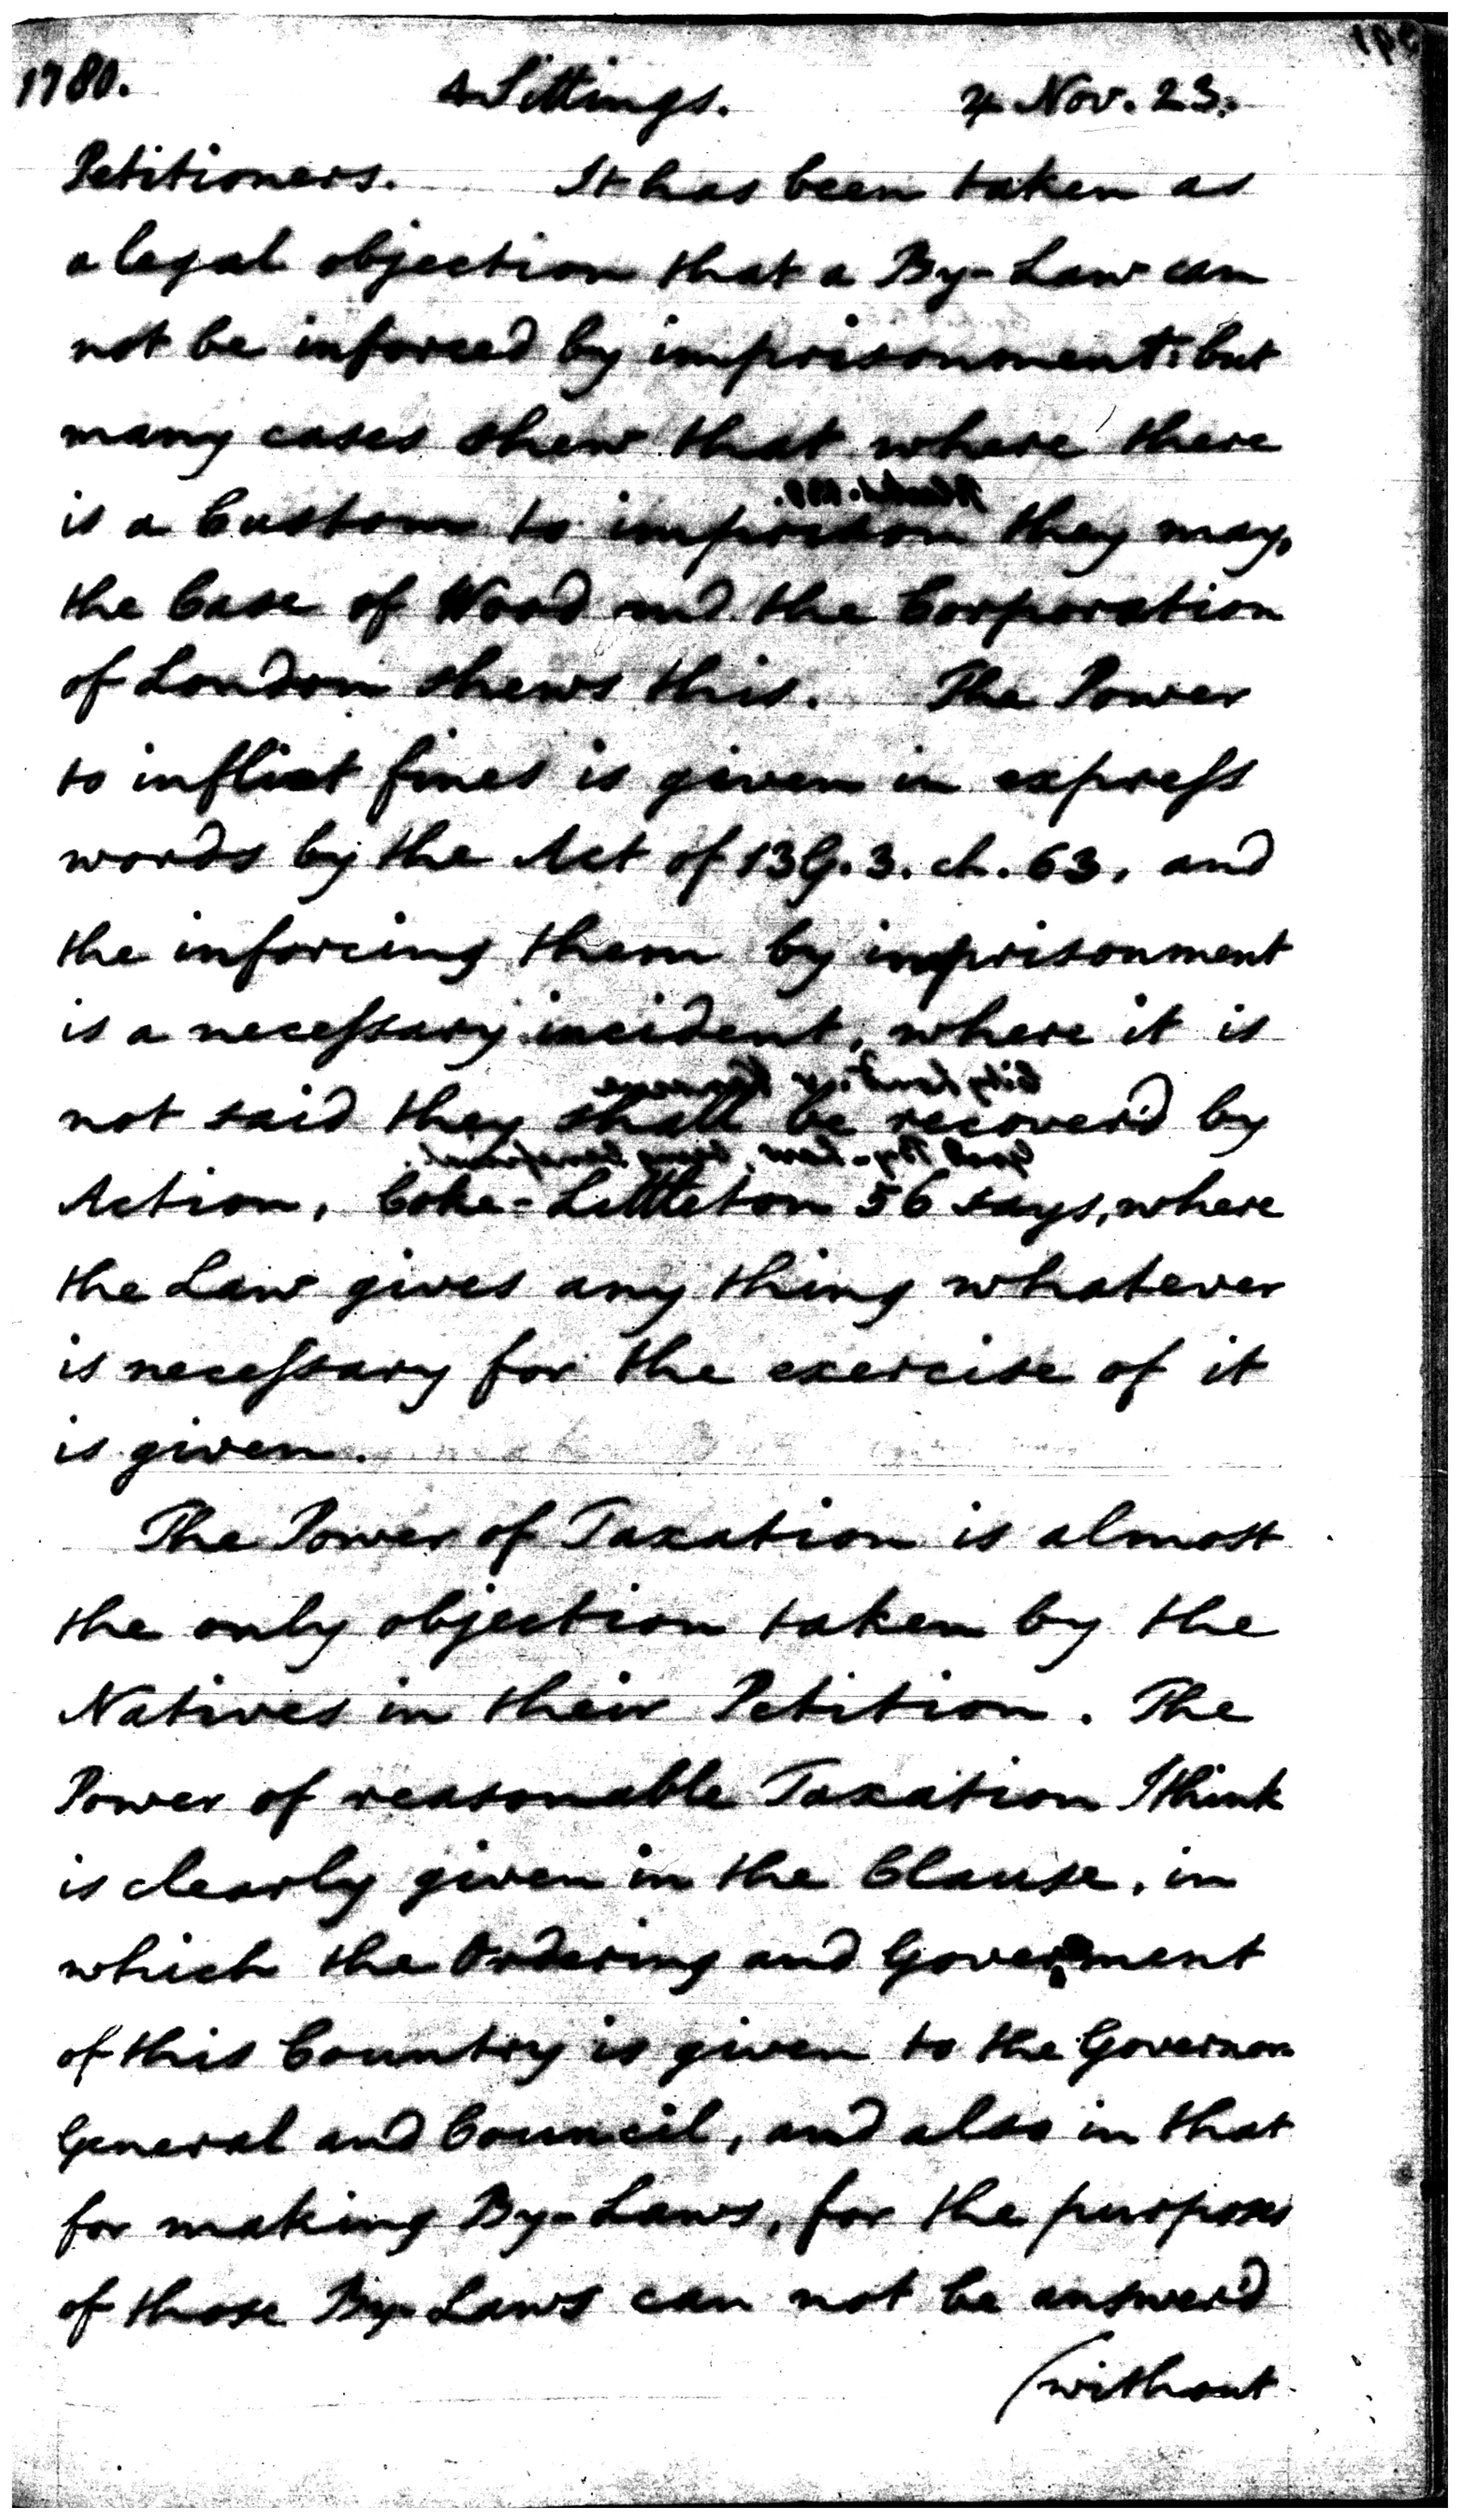 1780. 4 Sittings. ♃ Nov. 23.
Petitioners. It has been taken as
a legal objection that a By-Law can
not be inforced by imprisonment: but
many cases shew that where there
is a Custom to imprison they may,
the Case of Wood and the Corporation
of London shews this. The Power
to inflict fines is given in expreſs
words by the Act of 13 G. 3. ch. 63, and
the inforcing them by imprisonment
is a neceſsary incident, where it is
not said they shall be recover'd by
Action, Coke-Littleton 56 says, where
the Law gives any thing whatever
is neceſsary for the exercise of it
is given.
The Power of Taxation is almost
the only objection taken by the
Natives in their Petition. The
Power of reasonable Taxation I think
is clearly given in the Clause, in
which the Ordering and Government
of this Country is given to the Governor
General and Council, and also in that
for making By-Laws, for the purposes
of those By-Laws can not be answer'd
(without